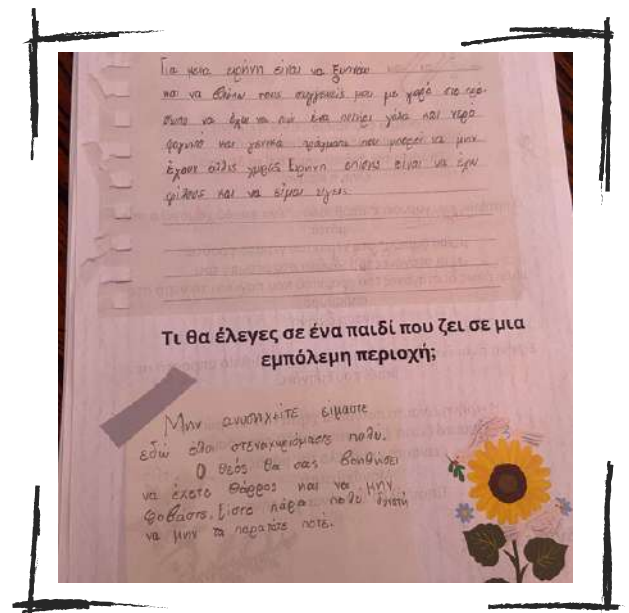 Για μενα ειρήνη είναι να ξυπνάω
και να βλέπω τους συγγενείς μου με χαρά στο πρό-
σωπο να έχω να πιώ ένα ποτήρι γάλα και νερό
φαγητό και γενικά πράγματα που μπορεί να μην
έχουν άλλες χώρες Ειρήνη επίσης είναι να έχω
φίλους και να είμαι υγιής.
Τι θα έλεγες σε ένα παιδί που ζει σε μια
εμπόλεμη περιοχή;
Μην ανυσηχείτε είμαστε
εδώ όλοι στεναχωριόμαστε πολυ.
Ο θεός θα σας βοηθήσει
να έχετε θάρρος και να μην
φοβάστε. Είστε πάρα πολυ δυνατή
να μην τα παρατάτε ποτέ.